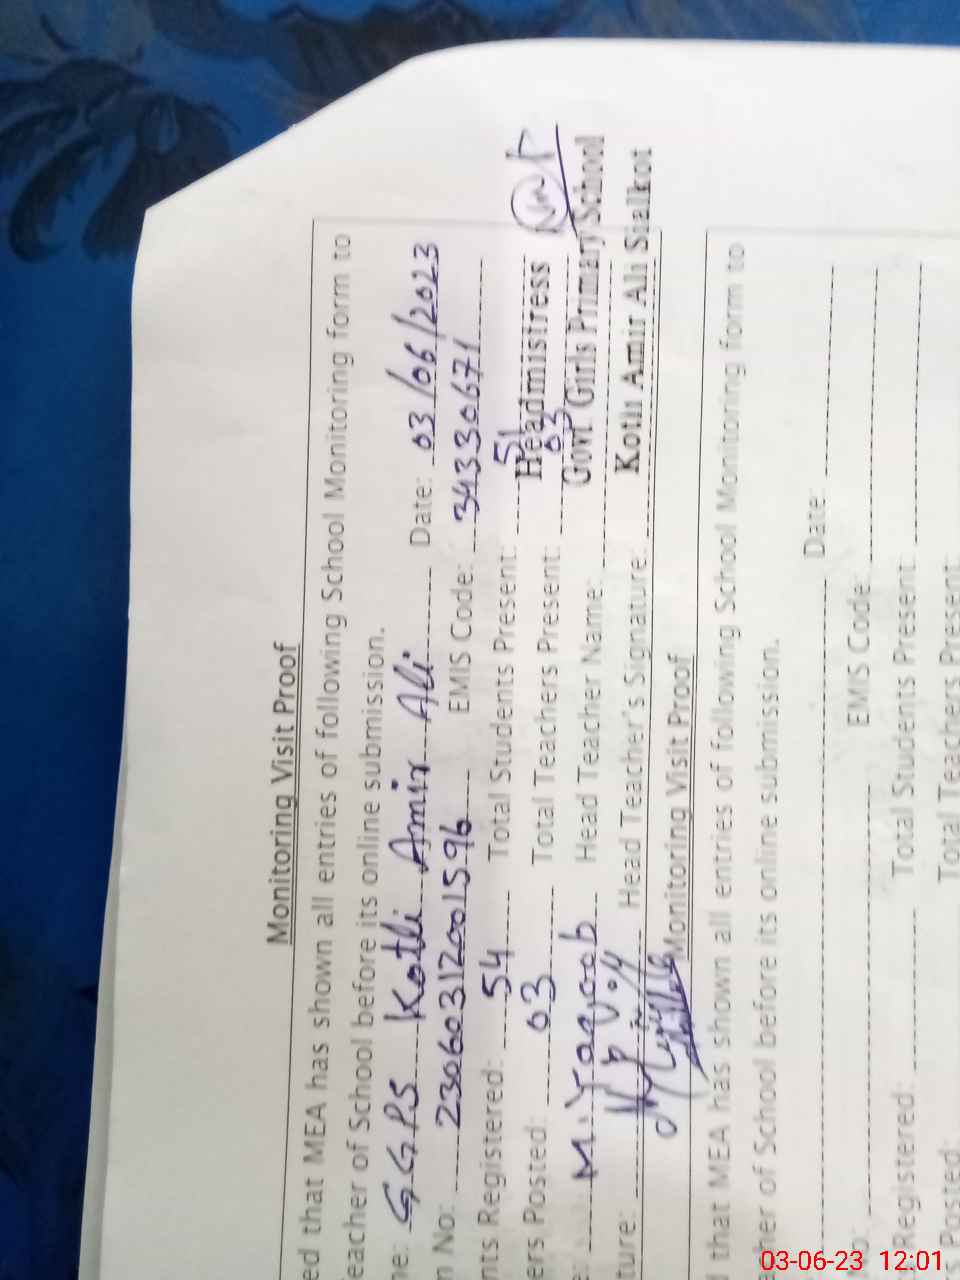 Monitoring Visit Proof
ed that MEA has shown all entries of following School Monitoring form to
eacher of School before its online submission.
me: G.G.P.S Kotli Amir Ali Date: 03/06/2023
n No: 23060312001596 EMIS Code: 34330671
nts Registered: 54 Total Students Present: 51
ers Posted: 03 Total Teachers Present: 03
e: M. Yaqoob Head Teacher Name:
ture: Head Teacher's Signature:
Headmistress
Govt Girls Primary School
Kotli Amir Ali Sialkot
Monitoring Visit Proof
d that MEA has shown all entries of following School Monitoring form to
cher of School before its online submission.
Date:
No: EMIS Code:
Registered: Total Students Present:
s Posted: Total Teachers Present:
03-06-23 12:01